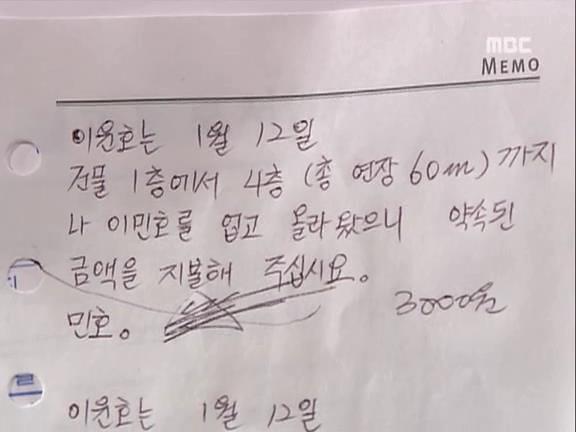 MBC
MEMO
이윤호는 1월 12일
건물 1층에서 4층 (총 연장 60m) 까지
나 이민호를 업고 올라 왔으니 약속된
금액을 지불해 주십시요.
민호. 3000원
이윤호는 1월 12일